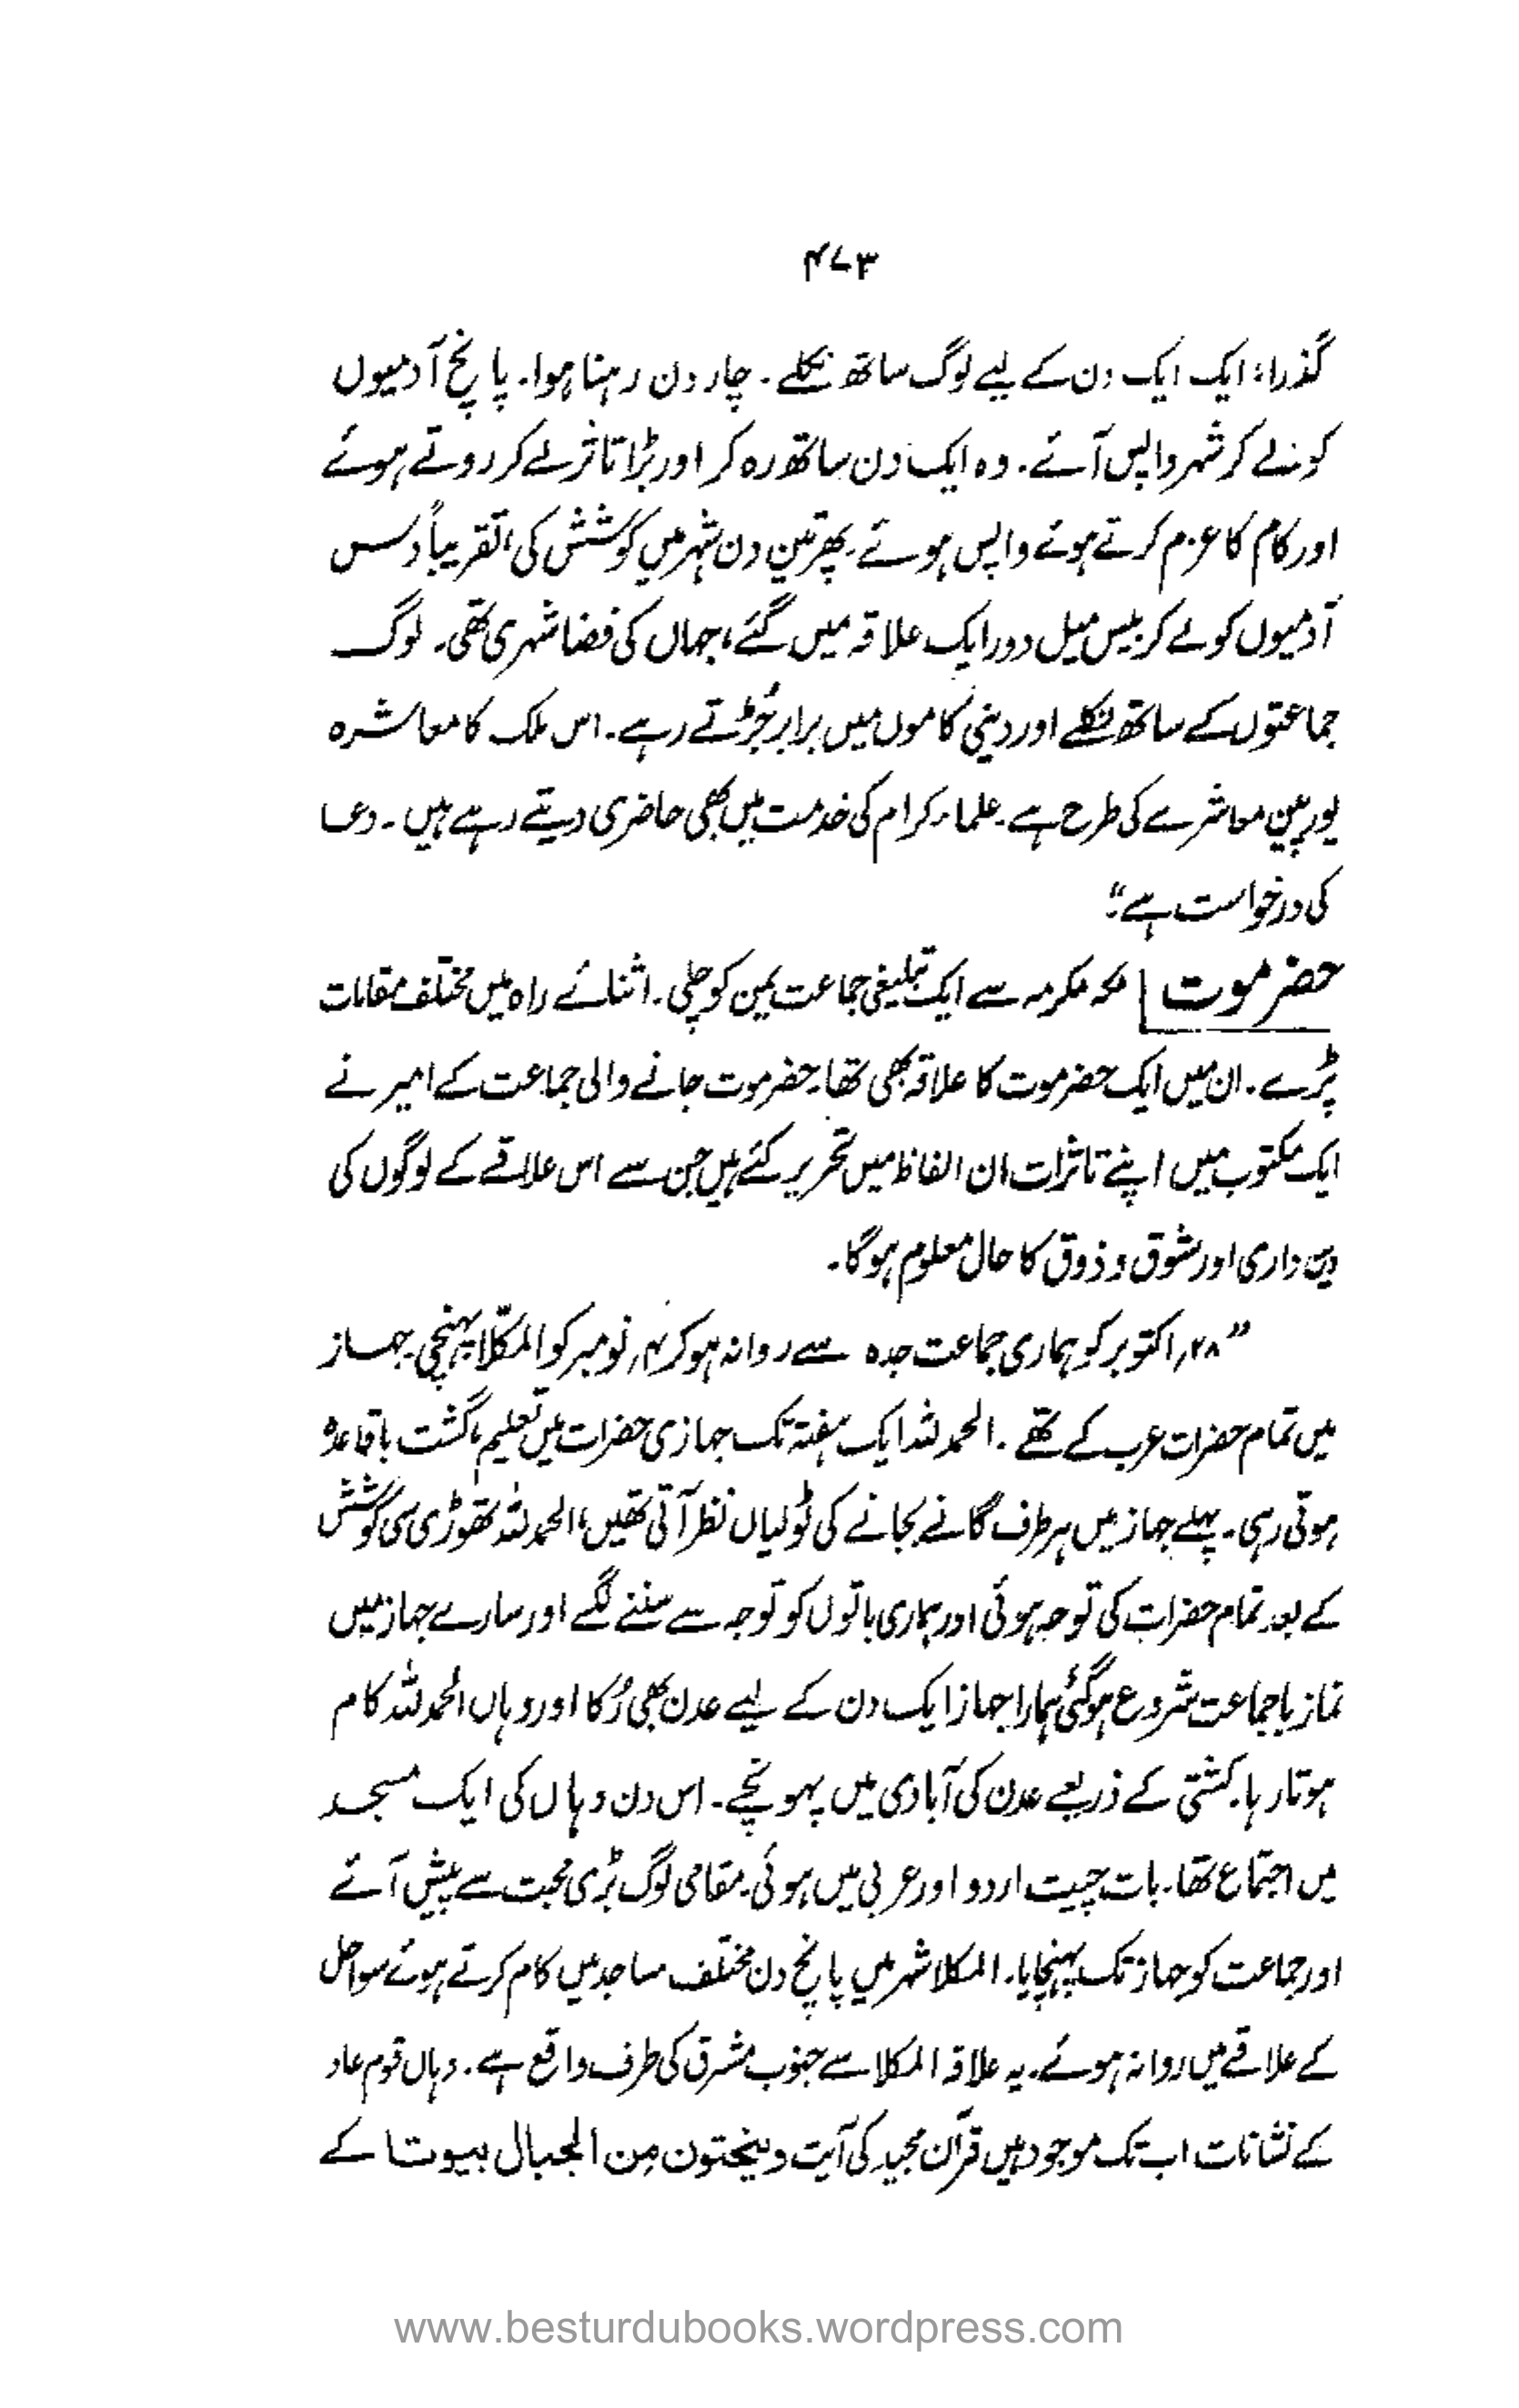 ۴۷۳
گذرا، ایک ایک دن کے لیے لوگ ساتھ نکلے۔ چار دن رہنا ہوا۔ پانچ آدمیوں
کو لے کر شہر واپس آئے۔ وہ ایک دن ساتھ رہ کر اور بڑا تاثر لے کر روتے ہوئے
اور کام کا عزم کرتے ہوئے واپس ہوئے۔ پھر تین دن شہر میں کوشش کی، تقریباً دس
آدمیوں کو لے کر بیس میل دور ایک علاقہ میں گئے، جہاں کی فضا شہری تھی۔ لوگ
جماعتوں کے ساتھ نکلے اور دینی کاموں میں برابر جُڑتے رہے۔ اس ملک کا معاشرہ
یورپین معاشرے کی طرح ہے۔ علماء کرام کی خدمت میں بھی حاضری دیتے رہے ہیں۔ دعا
کی درخواست ہے؛“
حضرموت | مکہ مکرمہ سے ایک تبلیغی جماعت یمن کو چلی۔ اثنائے راہ میں مختلف مقامات
پڑے۔ ان میں ایک حضرموت کا علاقہ بھی تھا۔ حضرموت جانے والی جماعت کے امیر نے
ایک مکتوب میں اپنے تاثرات ان الفاظ میں تحریر کئے ہیں جن سے اس علاقے کے لوگوں کی
دین داری اور شوق و ذوق کا حال معلوم ہوگا۔
”۲۸؍ اکتوبر کو ہماری جماعت جدہ سے روانہ ہو کر ۴؍ نومبر کو المکلّا پہنچی۔ جہاز
میں تمام حضرات عرب کے تھے۔ الحمد للہ ایک ہفتہ تک جہازی حضرات میں تعلیم، گشت باقاعدہ
ہوتی رہی۔ پہلے جہاز میں ہر طرف گانے بجانے کی ٹولیاں نظر آتی تھیں، الحمد للہ تھوڑی سی کوشش
کے بعد تمام حضرات کی توجہ ہوئی اور ہماری باتوں کو توجہ سے سننے لگے اور سارے جہاز میں
نماز باجماعت شروع ہوگئی ہمارا جہاز ایک دن کے لیے عدن بھی رُکا اور وہاں الحمد للہ کام
ہوتا رہا۔ کشتی کے ذریعے عدن کی آبادی میں پہونچے۔ اس دن وہاں کی ایک مسجد
میں اجتماع تھا۔ بات چیت اردو اور عربی میں ہوئی۔ مقامی لوگ بڑی محبت سے پیش آئے
اور جماعت کو جہاز تک پہنچایا۔ المکلا شہر میں پانچ دن مختلف مساجد میں کام کرتے ہوئے سواحل
کے علاقے میں روانہ ہوئے۔ یہ علاقہ المکلا سے جنوب مشرق کی طرف واقع ہے۔ وہاں قوم عاد
کے نشانات اب تک موجود ہیں قرآن مجید کی آیت وینحتون من الجبال بیوتا کے
www.besturdubooks.wordpress.com